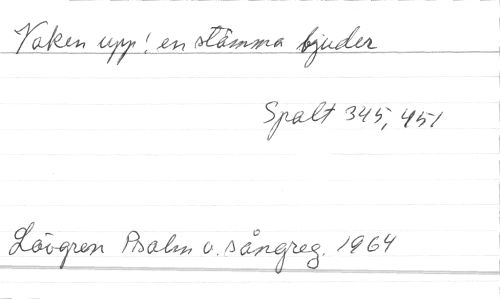 Vaken upp! en stämma bjuder
Spalt 345, 451
Lövgren Psalm o. sångreg. 1964